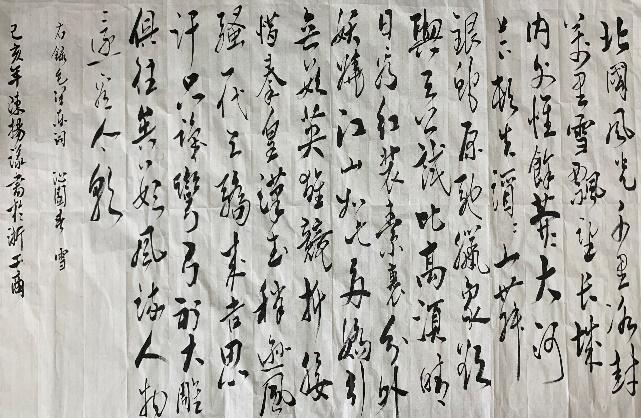 北國風光千里冰封
萬里雪飄望長城
内外惟餘莽莽大河
上下頓失滔滔山舞
銀蛇原馳蠟象欲
與天公試比高須晴
日看紅裝素裹分外
妖嬈江山如此多嬌引
無數英雄競折腰
惜秦皇漢武稍遜風
騷一代天驕成吉思
汗只識彎弓射大雕
俱往矣數風流人物
還看今朝
右錄毛澤東詞 沁園春 雪
己亥年陳書於浙工商